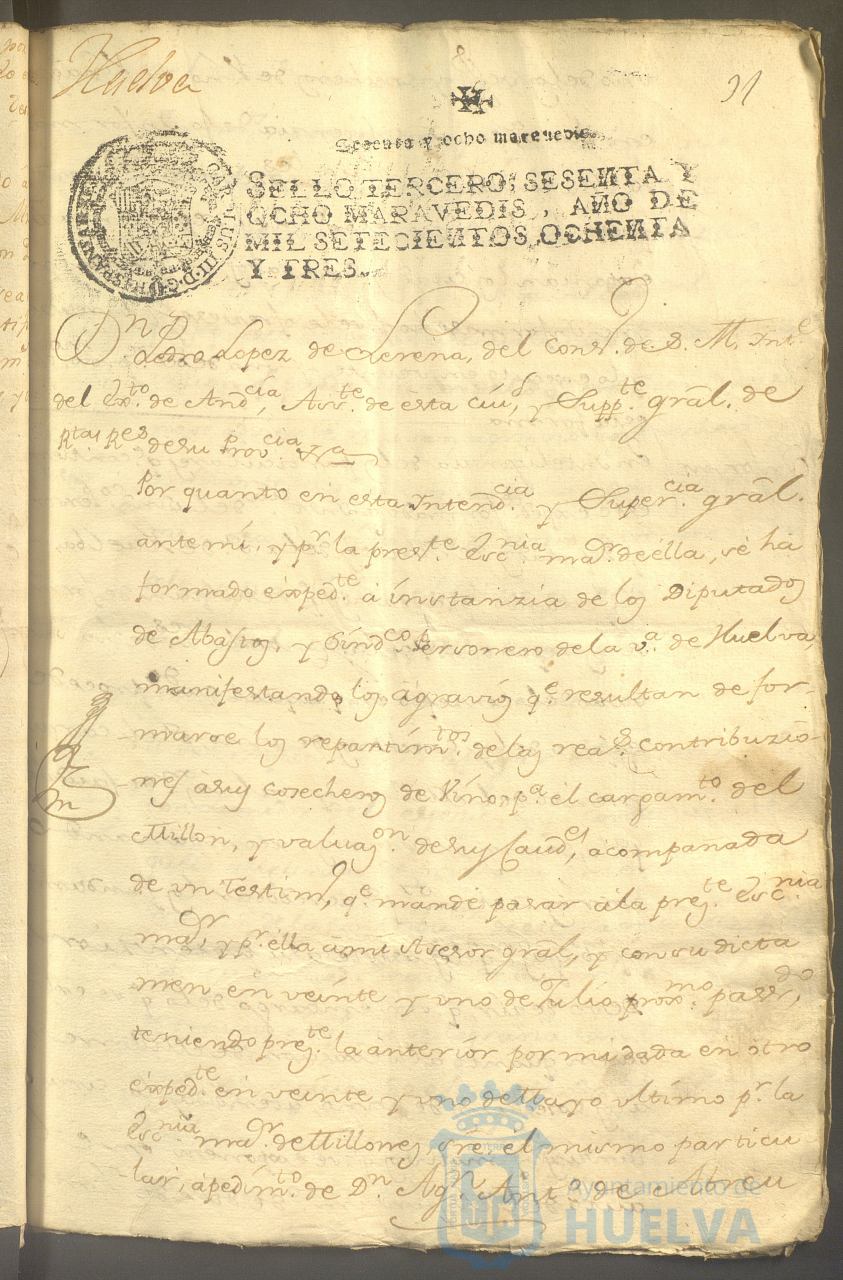 Huelva
91
Sesenta y ocho maravedis
SELLO TERCERO, SESENTA Y
OCHO MARAVEDIS, AÑO DE
MIL SETECIENTOS, OCHENTA
Y TRES.
CAROLUS III D G HISPANIAR
Dn. Pedro Lopez de Lerena, del Consº. de S. M. Inte.
del Exto. de Andcía, Asste. de esta ciud, y Suppte. gral. de
Rtas Res de su Provcia. &a
Por quanto en esta Intendcia. y Supercia. gral.
ante mi, y pr. la preste. Escnia. mar. de ella, se ha
formado expedte. á instanzia de los Diputados
de Abastos, y Sindco. Personero de la va. de Huelva,
manifestando los agravios qe. resultan de for-
marse los repartimtos. de las reas. contribuzio-
nes a sus cosecheros de Vino, pa. el cargamto. del
Millon, y valuaon. de sus Caudes, acompañada
de un Testimo, qe. mande pasar á la preste. Escnia.
mar, y pr. ella á mi Asesor gral, y con su dicta
men en veinte y uno de Julio proxmo. passdo,
teniendo preste. la anterior por mi dada en otro
expedte. en veinte y uno de Mayo ultimo pr. la
Escnia. mar. de Millones, sre. el mismo particu
lar, a pedimto. de Dn. Agn. Anto. de Abreu
Ayuntamiento de
HUELVA